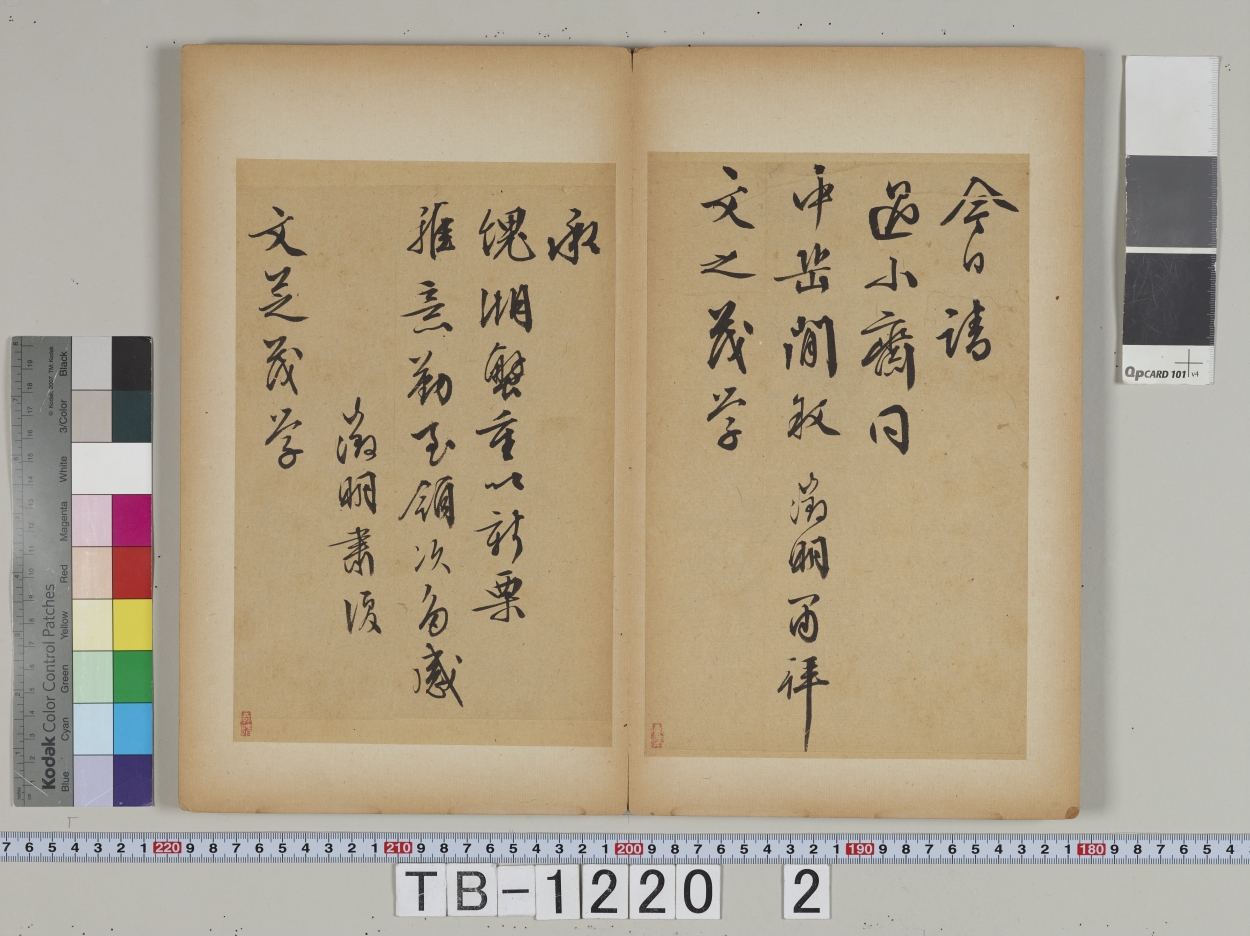 今日請
過小齋同
中岳閒敘
徵明再拜
文之茂学
承
愧湖蟹重以新栗
雅意勤至領次多感
徵明肅復
文芝茂学
Kodak Color Control Patches
© Kodak, 2007 TM: Kodak
Blue Cyan Green Yellow Red Magenta White 3/Color Black
QpCARD 101 v4
7 6 5 4 3 2 1 220 9 8 7 6 5 4 3 2 1 210 9 8 7 6 5 4 3 2 1 200 9 8 7 6 5 4 3 2 1 190 9 8 7 6 5 4 3 2 1 180 9 8 7 6 5 4
TB-1220 2